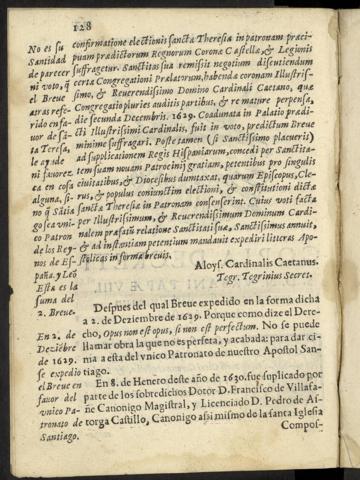 128
No es su
Santidad
de parecer
ni voto, q̃
el Breue
atras refe-
rido enfa-
uor de Sā-
ta Teresa,
le ayude
ni fauorez
ca en cosa
alguna, si-
no q̃ Sātia
go sea vni-
co Patron
de los Rey-
nos de Es-
paña, y Leō
Esta es la
suma del
2. Breue.
confirmatione electionis sancta Theresia in patronam præci-
puam prædictorum Regnorum Corona Castella, & Legionis
suffragetur. Sanctitas sua remisit negotium discutiendum
certa Congregationi Prælatorum, habenda coronam Illustris-
simo, & Reuerendissimo Domino Cardinali Caetano, quæ
Congregatio pluries auditis partibus, & re mature perpensa,
die secunda Decembris. 1629. Coadunata in Palatio prædi-
cti Illustrissimi Cardinalis, fuit in voto, prædictum Breue
minime suffragari. Posse tamen (si Sanctissimo placuerit)
ad supplicationem Regis Hispaniarum, concedi per Sanctita-
tem suam nouam Patrocinij gratiam, petentibus pro singulis
ciuitatibus, & Diocesibus dumtaxat, quarum Episcopus, Cle-
rus, & populus coniunctim electioni, & constitutioni dictæ
sancta Theresia in Patronam consenserint. Cuius voti facta
per Illustrissimum, & Reuerendissimum Dominum Cardi-
nalem præfatū relatione Sanctitati sua, Sanctissimus annuit,
& ad instantiam petentium mandauit expediri litteras Apo-
stolicas in forma breuis.
Aloys. Cardinalis Caetanus.
Tegr. Tegrinius Secret.
En 2. de
Deziẽbre
de 1629.
se expedio
el Breue en
fauor del
vnico Pa-
tronato de
Santiago.
Despues del qual Breue expedido en la forma dicha
a 2. de Deziembre de 1629. Porque como dize el Dere-
cho, Opus non est opus, si non est perfectum. No se puede
llamar obra la que no es perfeta, y acabada: para dar ci-
ma a esta del vnico Patronato de nuestro Apostol San-
tiago.
En 8. de Henero deste año de 1630. fue suplicado por
parte de los sobredichos Dotor D. Francisco de Villafa-
ñe Canonigo Magistral, y Licenciado D. Pedro de As-
torga Castillo, Canonigo assi mismo de la santa Iglesia
Compos-